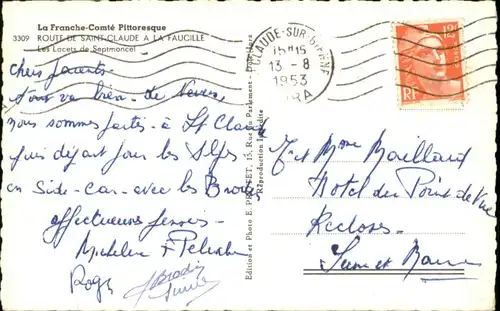 La Franche-Comté Pittoresque
3309 ROUTE DE SAINT-CLAUDE A LA FAUCILLE
Les Lacets de Septmoncel
chers parents
Tout va bien - de Nevers,
nous sommes partis à St Claude
puis départ pour les Alpes
en Side-Car - avec les
affectueuses
Micheline
Roger
Edition et Photo E. PROTET, 15, Rue du Parlement, Dijon
Reproduction interdite
CLAUDE-SUR-BIENNE
15H15
13 - 8
1953
JURA
12F
RF
M et Mme Maillard
Hotel du Point de Vue
Recloses
Seine et Marne